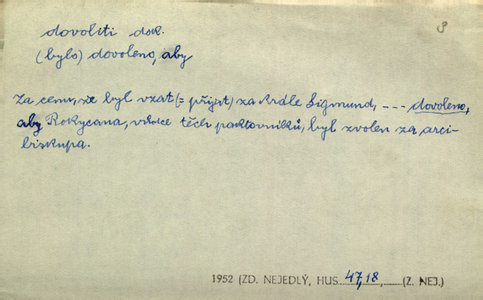 dovoliti dok.
(bylo) dovoleno, aby
Za cenu, že byl vzat (= přijat) za krále Sigmund, --- dovoleno,
aby Rokycana, vůdce těch paktovníků, byl zvolen za arci-
biskupa.
1952 (ZD. NEJEDLÝ, HUS. 47,18, (Z. NEJ.)